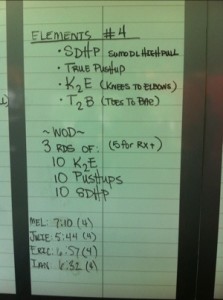 ELEMENTS #4
· SDHP SUMO DL HIGH PULL
· TRUE PUSHUP
· K2E (KNEES TO ELBOWS)
· T2B (TOES TO BAR)
~WOD~
3 RDS OF: (5 FOR RX+)
10 K2E
10 PUSHUPS
10 SDHP
MEL: 7:10 (4)
JULIE: 5:44 (4)
ERIC: 6:57 (4)
IAN: 6:32 (4)